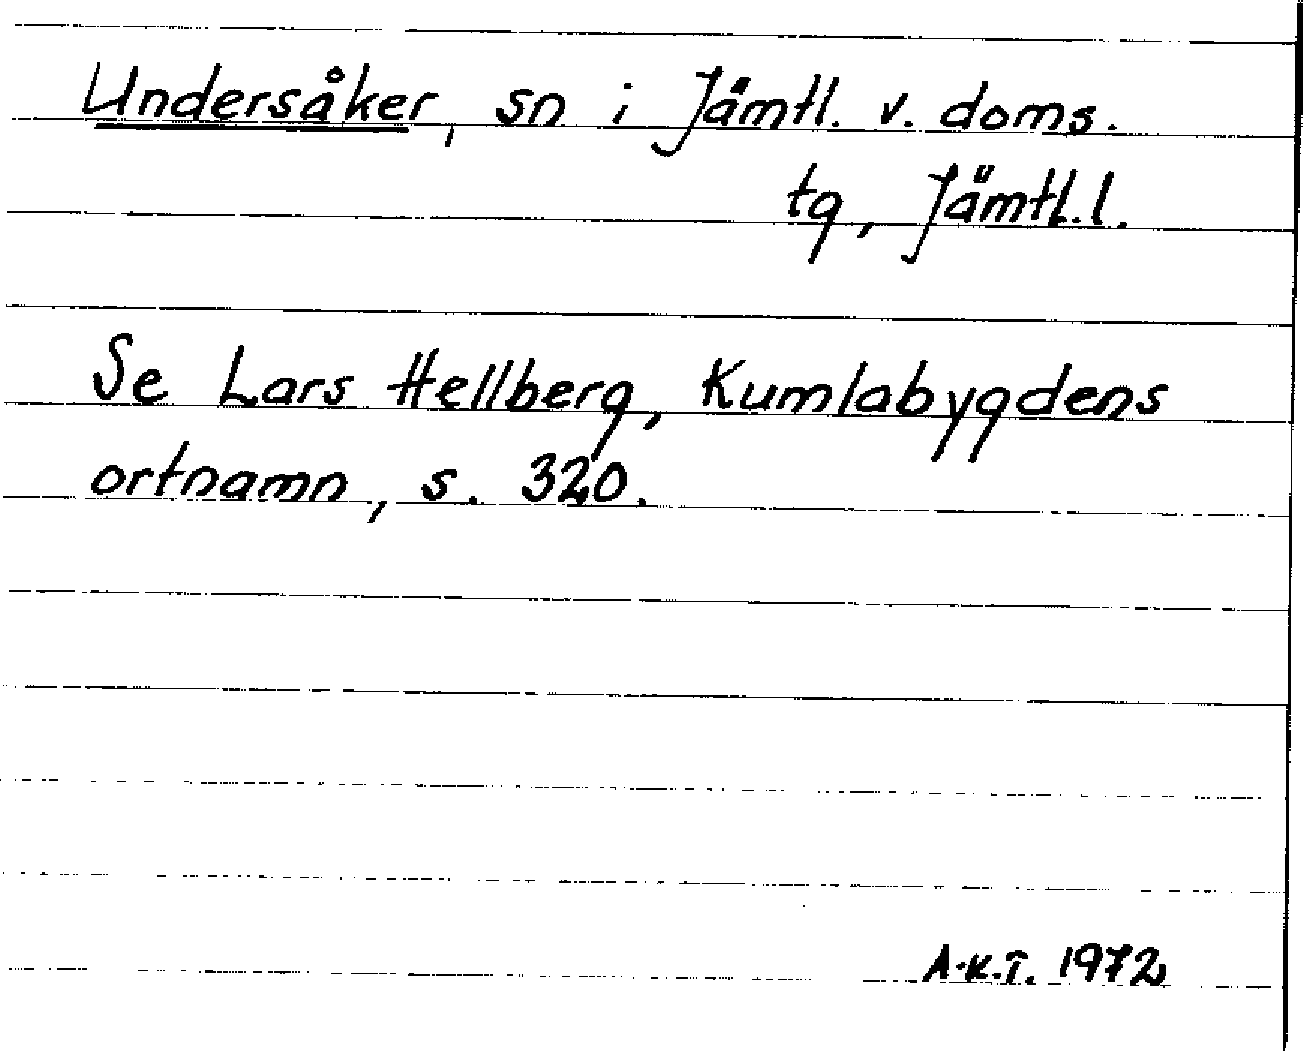 Undersåker, sn i Jämtl. v. doms.
tg, Jämtl.l.
Se Lars Hellberg, Kumlabygdens
ortnamn, s. 320.
A.K.T. 1972